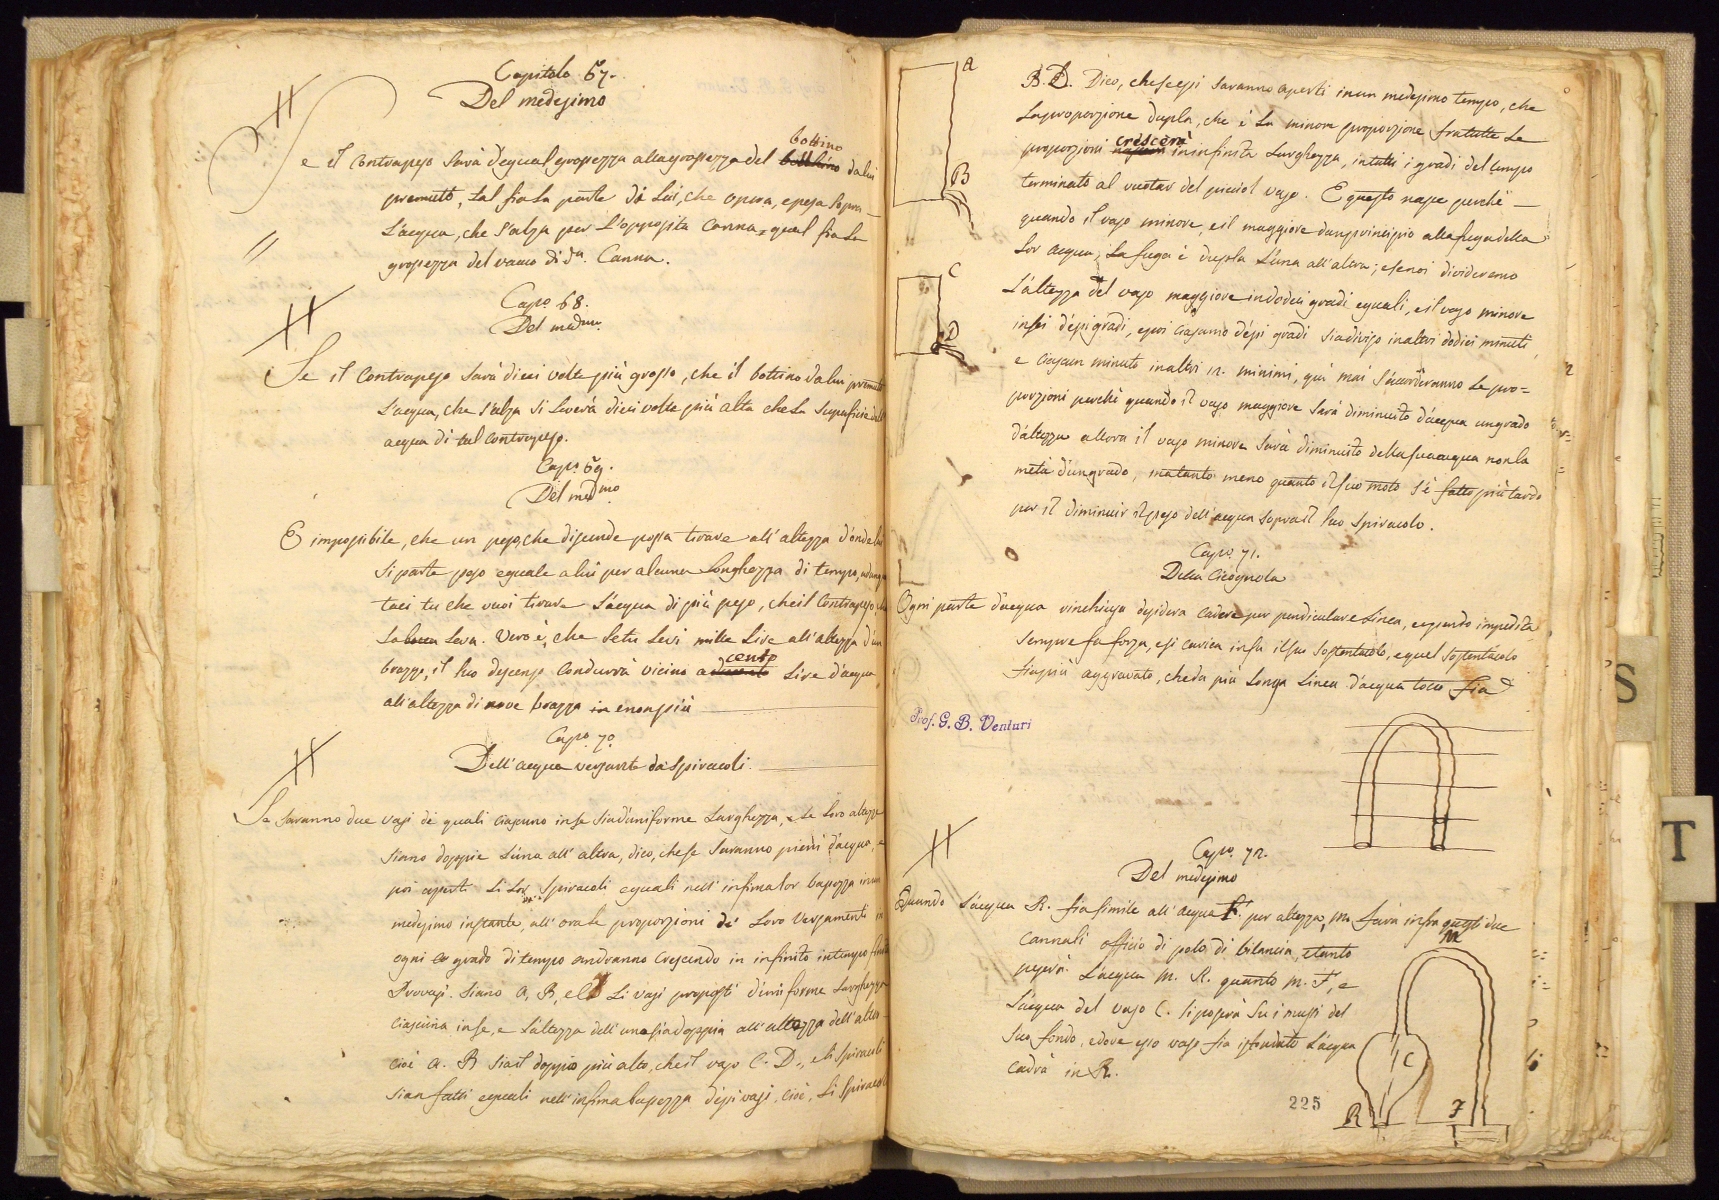 Capitolo 67.
Del medesimo
bottino
Se il Contrapeso sarà d'egual grossezza alla grossezza del bottino da lui
premuto, tal fia la parte di Lui, che opera, e pesa sopra
L'acqua, che s'alza per L'opposita Canna, qual fia la
grossezza del vacuo di da. Canna.
Capo 68.
Del medmo.
Se il Contrapeso sarà dieci volte più grosso, che il bottino da lui premuto
L'acqua, che s'alza si leverà dieci volte più alta che La superficie dell
acqua di tal contrapeso.
Capo. 69.
Del medmo
E impossibile, che un peso, che discende possa tirare all'altezza d'onde lui
si parte peso eguale a lui per alcuna Longhezza di tempo, adunque
taci tu che vuoi tirare L'acqua di più peso, che il Contrapeso che
La leva. Vero è, che se tu Levi mille Lire all'altezza d'un
cento
brazzo, il suo descenso Condurrà vicino a Lire d'acqua
all'altezza di nove brazza e non più
Capo. 70.
Dell'acqua versante da Spiracoli.
Se saranno due vasi de quali ciascuno in se sia d'uniforme Larghezza, e Le Loro altezze
siano doppie L'una all'altra, dico, che se saranno pieni d'acqua, e
poi aperti Li Lor Spiracoli eguali nell'infima lor bassezza in un
medesimo instante, all'ora le proporzioni de' Loro Versamenti in
ogni grado di tempo andranno Crescendo in infinito in tempo finito
Provasi. Siano A, B, e Li vasi proposti d'uniforme Larghezza
Ciascuna in se, e L'altezza dell'uno sia doppia all'altezza dell'altro
cioè A. B sia il doppio più alto, che il vaso C. D., e li Spiracoli
sian fatti eguali nell'infima bassezza d'essi vasi, Cioè, Li Spiracoli
A
B
C
D
B. D. Dico, che s'essi saranno aperti in un medesimo tempo, che
La proporzione dupla, che è La minore proporzione fra tutte Le
crescerà
proporzioni in infinita Larghezza, in tutti i gradi del tempo
terminato al vuotar del piccol vaso. E questo nasce perchè
quando il vaso minore, e il maggiore dan principio alla fuga della
Lor acqua, La fuga è dupla L'una all'altra; e se noi divideremo
L'altezza del vaso maggiore in dodici gradi eguali, e il vaso minore
in sei d'essi gradi, e poi Ciascuno d'essi gradi sia diviso in altri dodici minuti
e Ciascun minuto in altri 12. minimi, quì mai s'accorderanno Le pro=
porzioni perchè quando il vaso maggiore sarà diminuito d'acqua un grado
d'altezza allora il vaso minore sarà diminuito della sua acqua non la
metà d'un grado, ma tanto meno quanto il suo moto s'è fatto più tardo
per il diminuir il peso dell'acqua sopra il suo Spiracolo.
Capo. 71.
Della Cicognola
Ogni parte d'acqua rinchiusa desidera cadere per perpendiculare Linea, essendo impedita
sempre fa forza, e si carica infra il suo sostentacolo, e quel sostentacolo
fia più aggravato, che da più Longa Linea d'acqua tocco fia
Prof. G. B. Venturi
Capo. 72.
Del medesimo
Quando L'acqua R. fia simile all'acqua F. per altezza, M. farà infra questi due
Cannali officio di polo di bilancia, e tanto
peserà L'acqua M. R. quanto M. F, e
L'acqua del vaso C. si poserà su i numsi del
suo fondo, e dove esso vaso fia isfondato L'acqua
Cadrà in R.
M
C
R
F
225
S
T